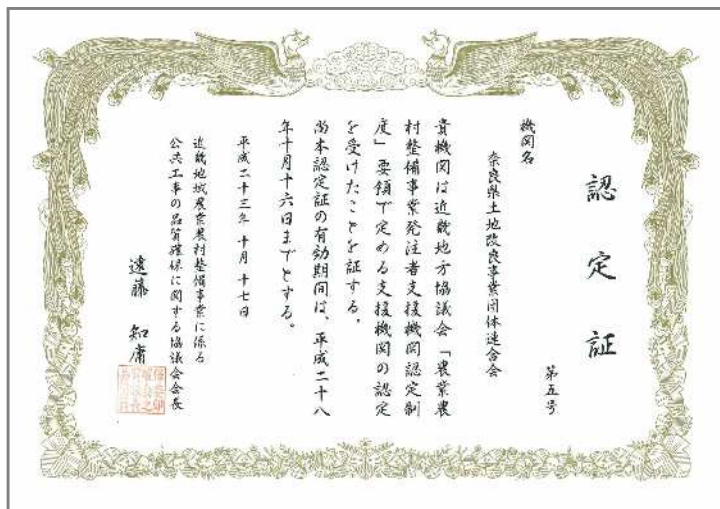 認定証
第五号
機関名
奈良県土地改良事業団体連合会
貴機関は近畿地方協議会「農業農
村整備事業発注者支援機関認定制
度」要領で定める支援機関の認定
を受けたことを証する。
尚本認定証の有効期間は、平成二十八
年十月十六日までとする。
平成二十三年十月十七日
近畿地域農業農村整備事業に係る
公共工事の品質確保に関する協議会会長
遠藤知庸